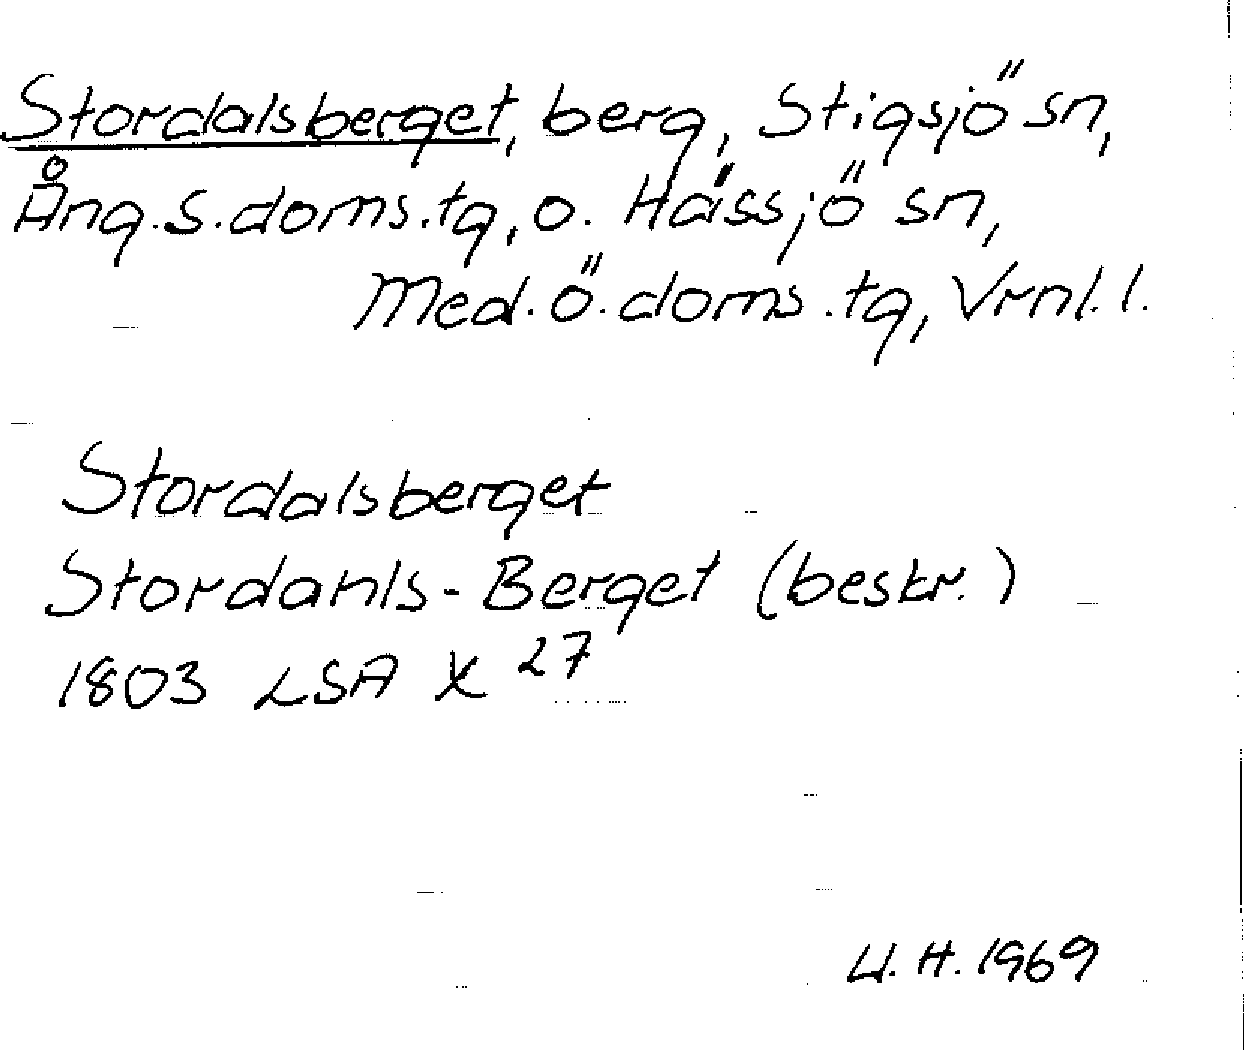 Stordalsberget, berg, Stigsjö sn,
Ång. S. doms. tg, o. Hässjö sn,
Med. Ö. doms. tg, Vrnl. l.
Stordalsberget
Stordahls-Berget (beskr.)
1803 LSA X 27
U. H. 1969